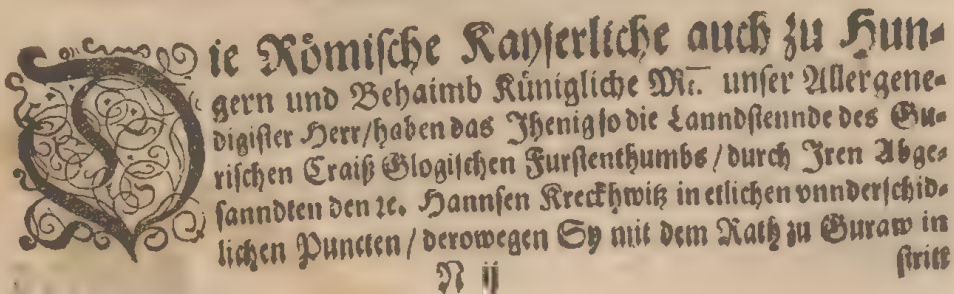 Die Römische Kayserliche auch zu Hun-
gern und Behaimb Künigliche Mt. unser Allergene-
digister Herr/haben das Jhenig so die Lanndstennde des Gu-
rischen Craiß Glogischen Furstenthumbs/durch Iren Abge-
sanndten den ꝛc. Hannsen Kreckhwitz in etlichen vnnderschid-
lichen Puncten/derowegen Sy mit dem Rath zu Guraw in
stritt
N ij